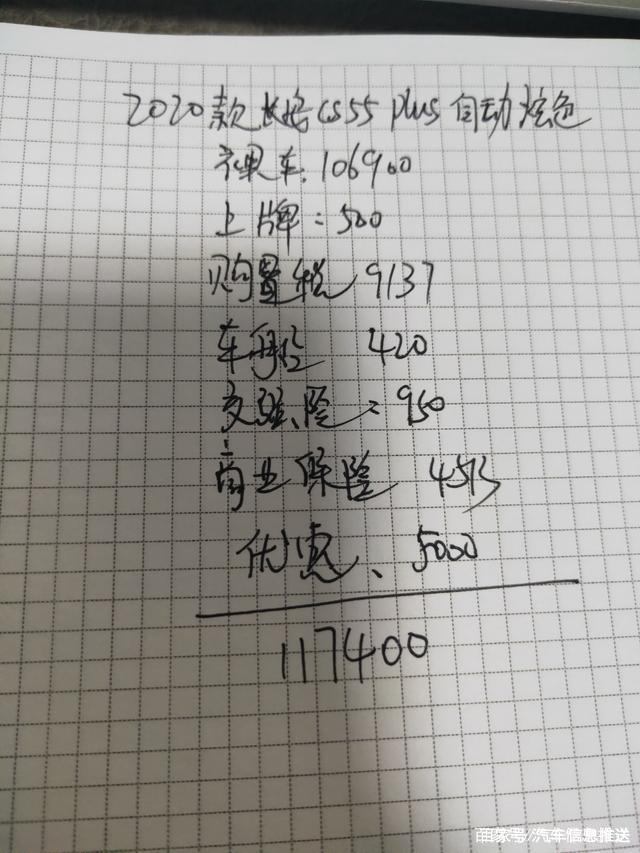 2020款长安CS55 plus 自动炫色
裸车:106900
上牌:500
购置税 9137
车船 420
交强险:950
商业保险 4513
优惠、5000
117400
百家号/汽车信息推送